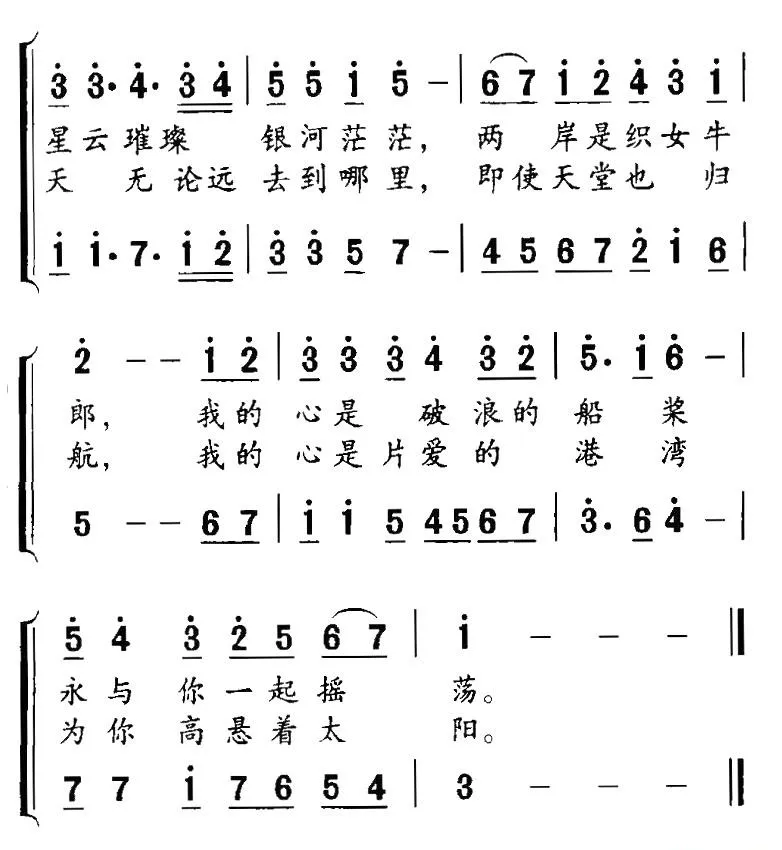 3 3· 4· 3 4 | 5 5 1 5 – | 6 7 1 2 4 3 1 |
星云璀璨 银河茫茫，两 岸是织女牛
天 无论远去到哪里，即使天堂也 归
1 1· 7· 1 2 | 3 3 5 7 – | 4 5 6 7 2 1 6 |
2 – – 1 2 | 3 3 3 4 3 2 | 5· 1 6 – |
郎， 我的 心是 破浪的 船 桨
航， 我的 心是片爱的 港 湾
5 – – 6 7 | 1 1 5 4 5 6 7 | 3· 6 4 – |
5 4 3 2 5 6 7 | 1 – – – ‖
永与 你一起摇 荡。
为你 高悬着太 阳。
7 7 1 7 6 5 4 | 3 – – – ‖